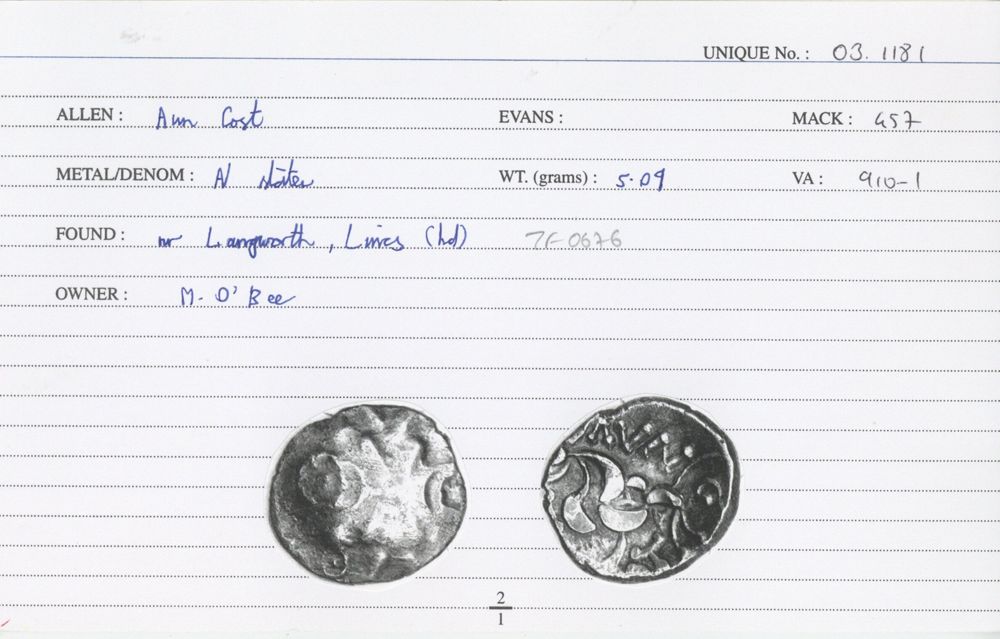 UNIQUE No. : 03. 1181
ALLEN : Aun Cost EVANS : MACK : 457
METAL/DENOM : AV stater WT. (grams) : 5.09 VA : 910-1
FOUND : nr Langworth, Lincs (hd) 7F0676
OWNER : M. O'Bee
2
1